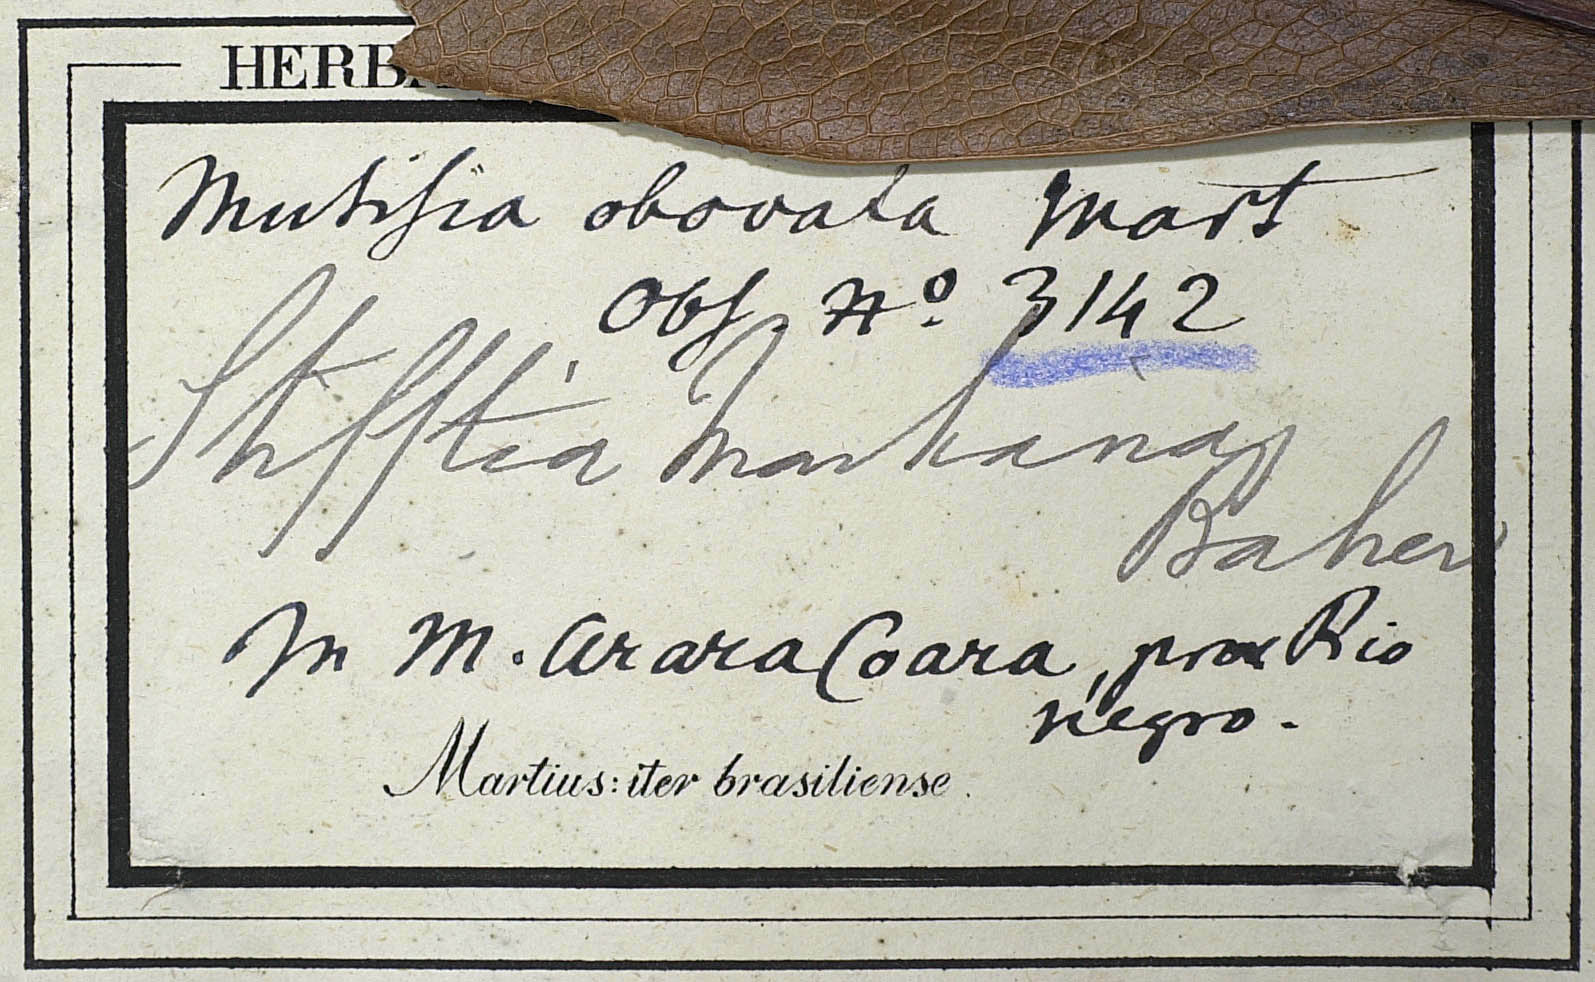 HERBA
Mutisia obovata Mart
Obs. No. 3142
Stifftia Martiana
Baker
In M. Arara Coara, prox Rio
negro.
Martius: iter brasiliense.